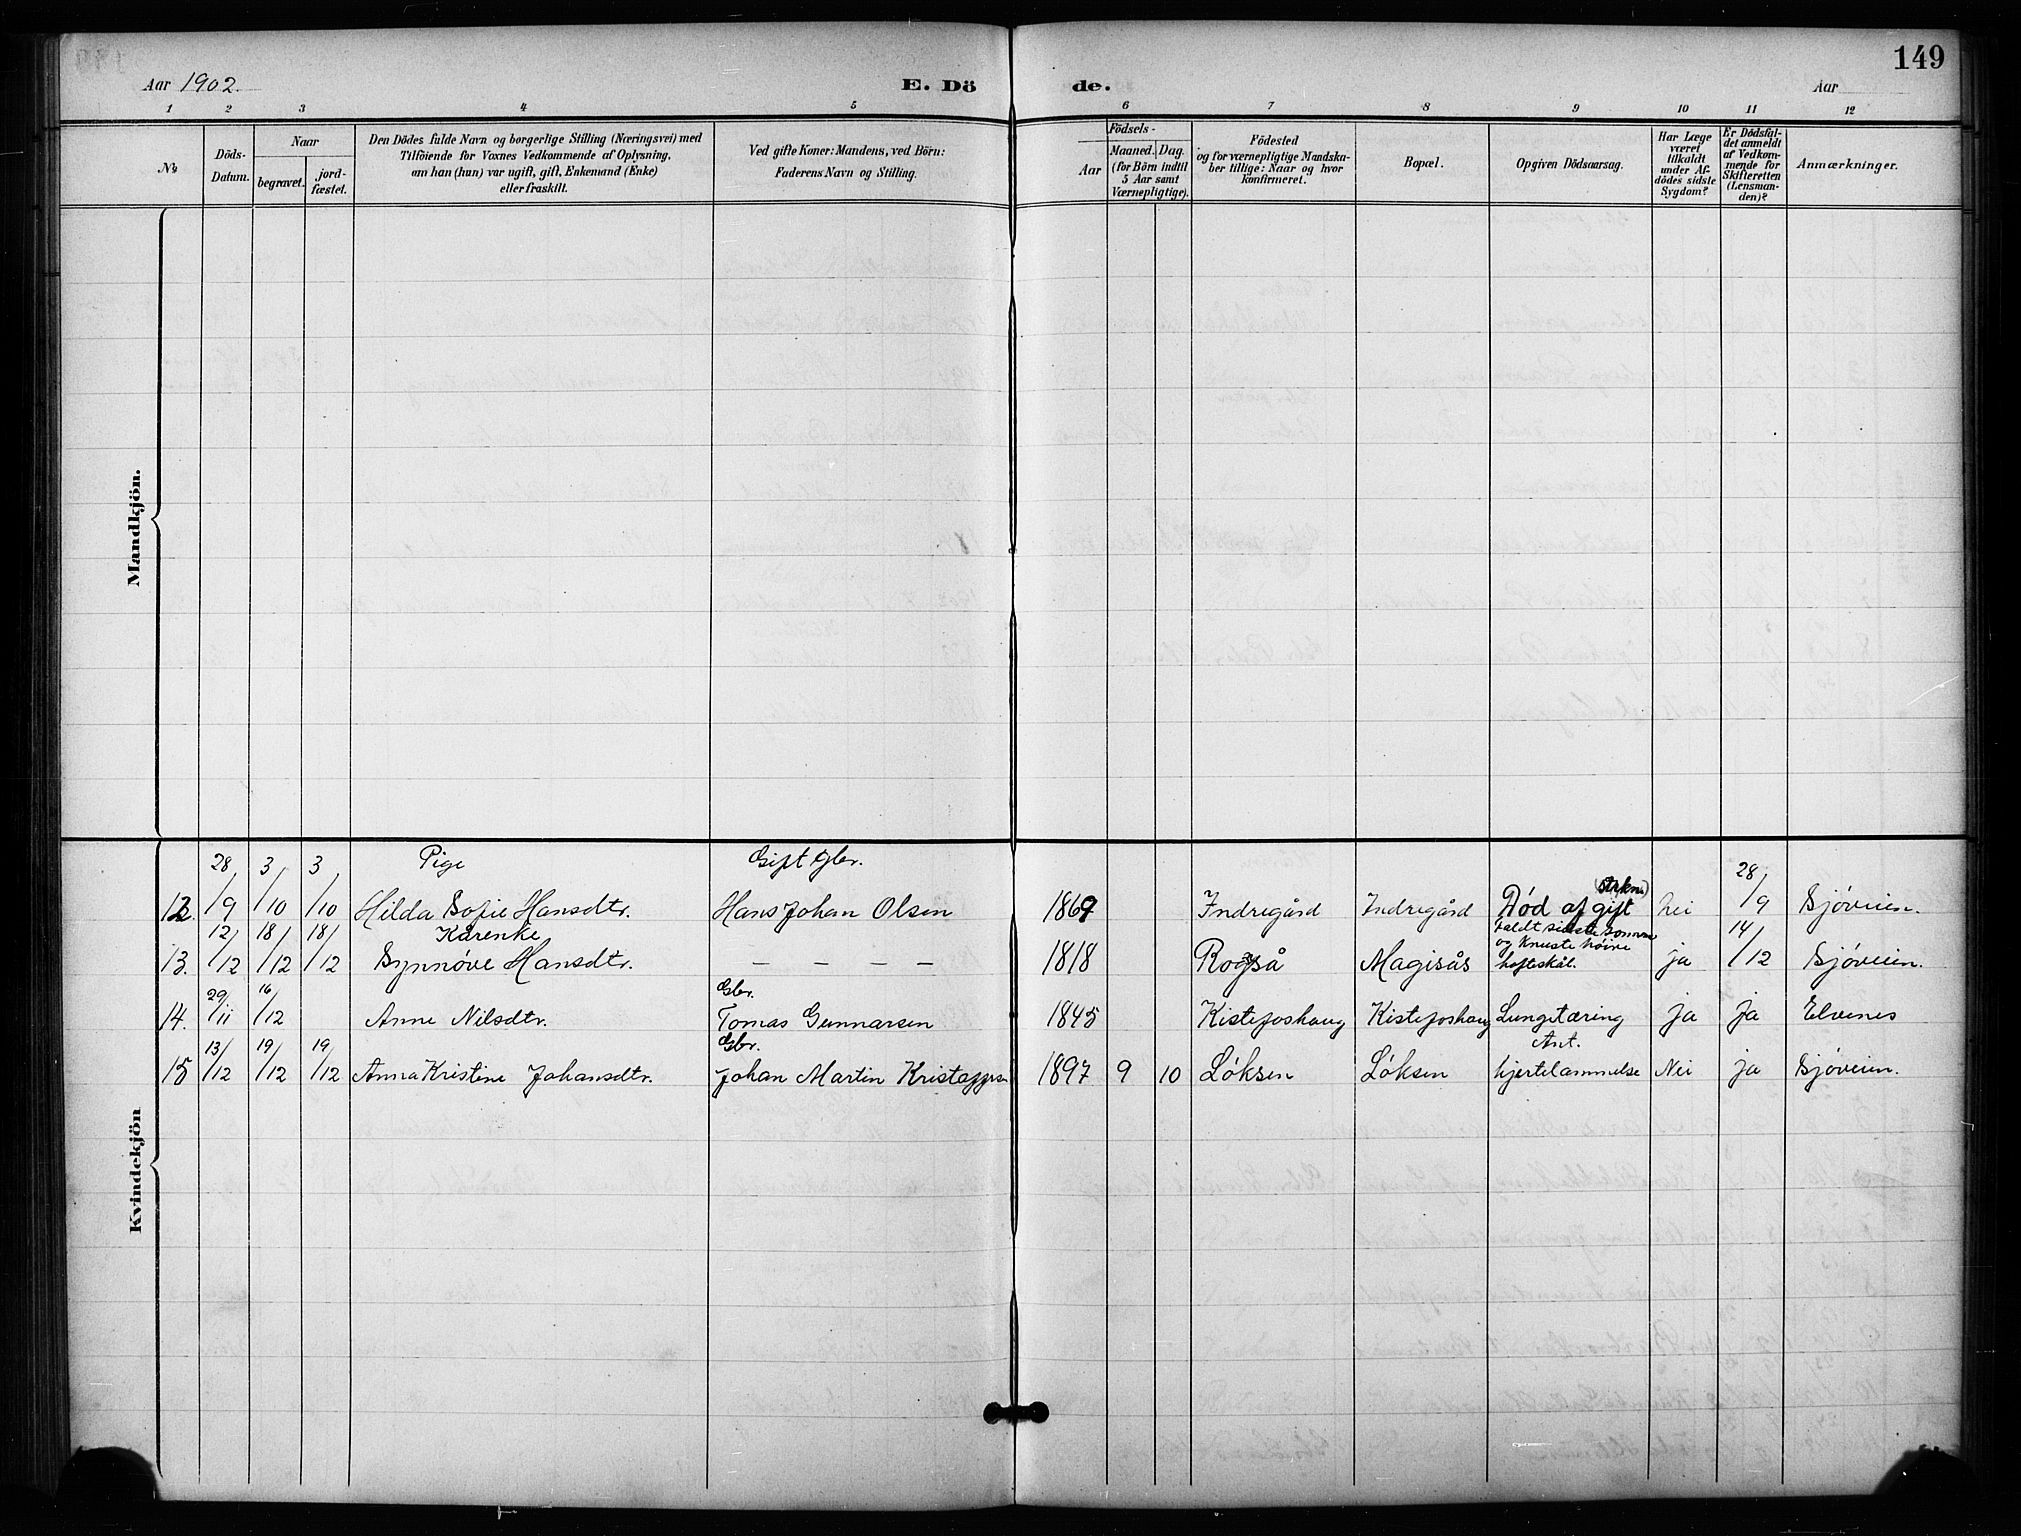 149
Aar 1902.
E. Dö de.
Aar
1 2 3 4 5 6 7 8 9 10 11 12
No
Döds-Datum.
Naar
begravet.
jord-fæstet.
Den Dödes fulde Navn og borgerlige Stilling (Næringsvei) med
Tilföiende for Voxnes Vedkommende af Oplysning,
om han (hun) var ugift, gift, Enkemand (Enke)
eller fraskilt.
Ved gifte Koner: Mandens, ved Börn:
Faderens Navn og Stilling.
Födsels-
Aar
Maaned. Dag.
(for Börn indtil
5 Aar samt
Værnepligtige).
Födested
og for værnepligtige Mandska-
ber tillige: Naar og hvor
konfirmeret.
Bopæl.
Opgiven Dödsaarsag.
Har Læge
været
tilkaldt
under Af-
dödes sidste
Sygdom?
Er Dödsfal-
det anmeldt
af Vedkom-
mende for
Skifteretten
(Lensman-
den)?
Anmærkninger.
Mandkjön.
Kvindekjön
Pige Gift Gbr.
12. 28/9 3/10 3/10 Hilda Sofie Hansdtr. Hans Johan Olsen 1869 Indregård Indregård Död af gift nei 28/9 Sjöveien.
Kårenke faldt sidste sommer
og knuste höire
13. 12/12 18/12 18/12 Synnöve Hansdtr. — — — — 1818 Magisås hofteskål. ja 14/12 Sjöveien.
Gbr.
14. 29/11 16/12 Anne Nilsdtr. Tomas Gunnarsen 1845 Kistefoshaug Kistefoshaug Lungetæring ja ja Elvenes
Gbr. Ant.
15 13/12 19/12 19/12 Anna Kristine Johansdtr. Johan Martin Kristoffersen 1897 9 10 Löksen Löksen hjertelammelse Nei ja Sjöveien.